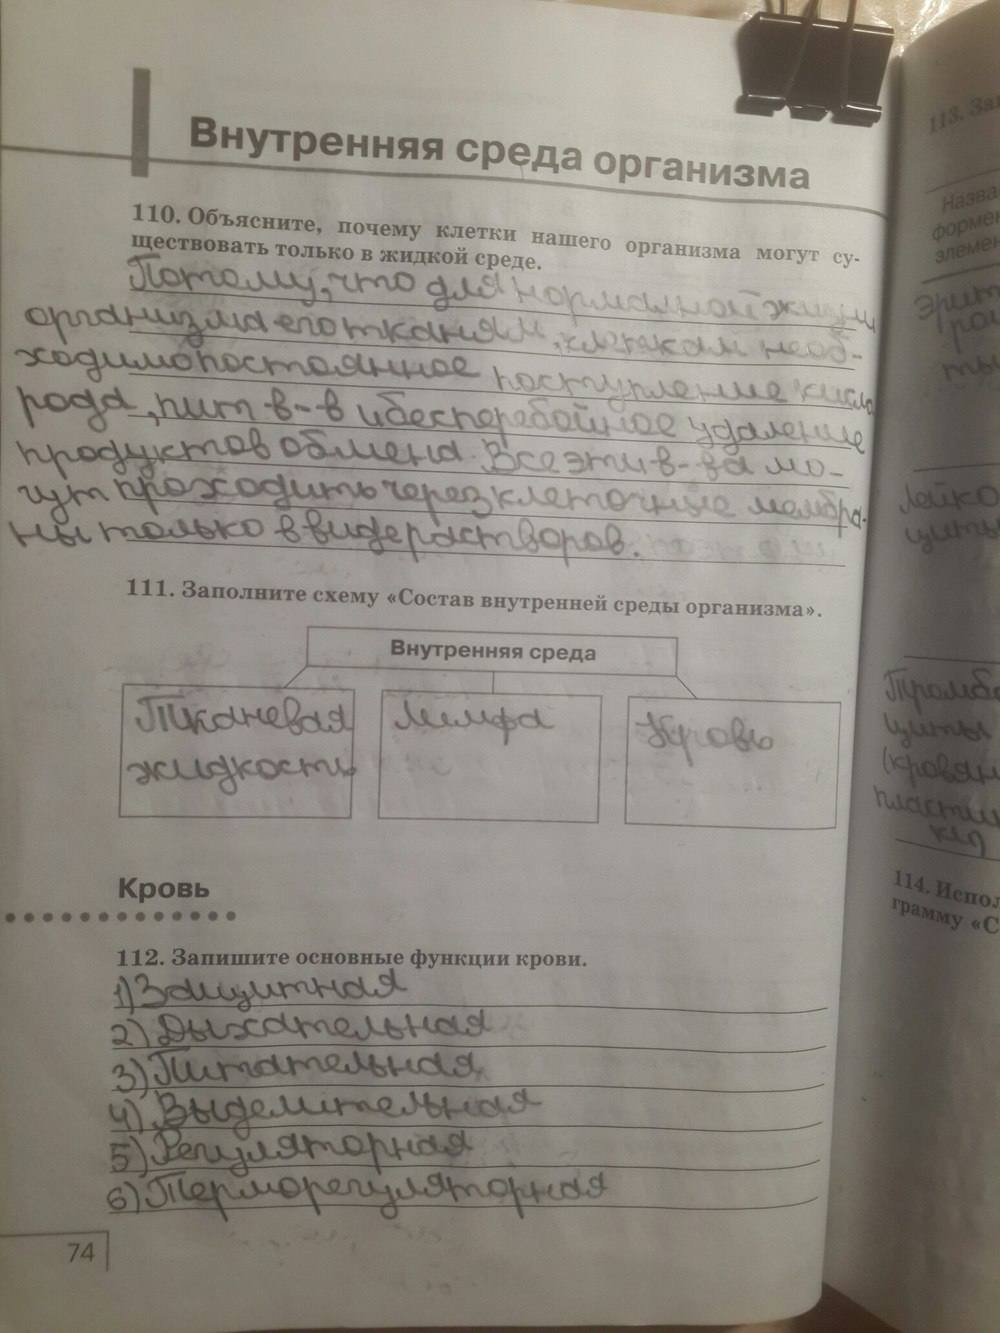 Внутренняя среда организма
110. Объясните, почему клетки нашего организма могут су-
ществовать только в жидкой среде.
Потому, что для нормальной жизни
организма его тканям, клеткам необ-
ходимо постоянное поступление кисло
рода, пит-в-в и бесперебойное удаление
продуктов обмена. Все эти в-ва мо-
гут проходить через клеточные мембра-
ны только в виде растворов.
111. Заполните схему «Состав внутренней среды организма».
Внутренняя среда
Тканевая
жидкость
Лимфа
Кровь
Кровь
112. Запишите основные функции крови.
1) Защитная
2) Дыхательная
3) Питательная
4) Выделительная
5) Регуляторная
6) Терморегуляторная
74
113. Зах
Назва
формен
элемен
Эрит
роц
ты
Лейко
циты
Тромбо
циты
(кровян
пластин
ки)
114. Испол
грамму «С